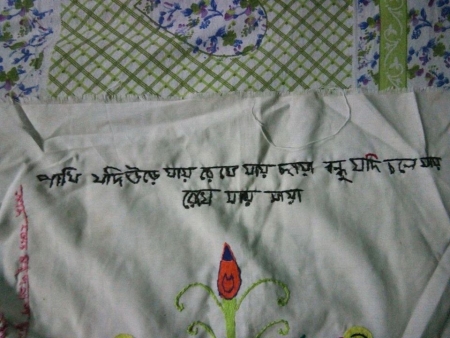 পাখি যদি উড়ে যায় রেখে যায় ছায়া বন্ধু যদি চলে যায়
রেখে যায় মায়া